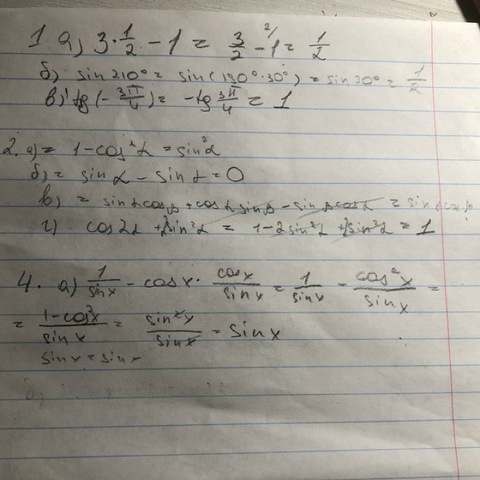 1. а) 3·1/2 - 1 = 3/2 - 1 = 1/2
б) sin 210° = sin(180°·30°) = sin 30° = 1/2
в) tg(-3π/4) = -tg 3π/4 = 1
2. а) = 1 - cos²α = sin²α
б) = sin α - sin α = 0
в) = sin α cos β + cos α sin β - sin β cos α = sin α cos β
г) cos 2α + 2sin²α = 1 - 2sin²α + 2sin²α = 1
4. а) 1/sin x - cos x · cos x/sin x = 1/sin x - cos²x/sin x =
= 1-cos²x/sin x = sin²x/sin x = sin x
sin x = sin x